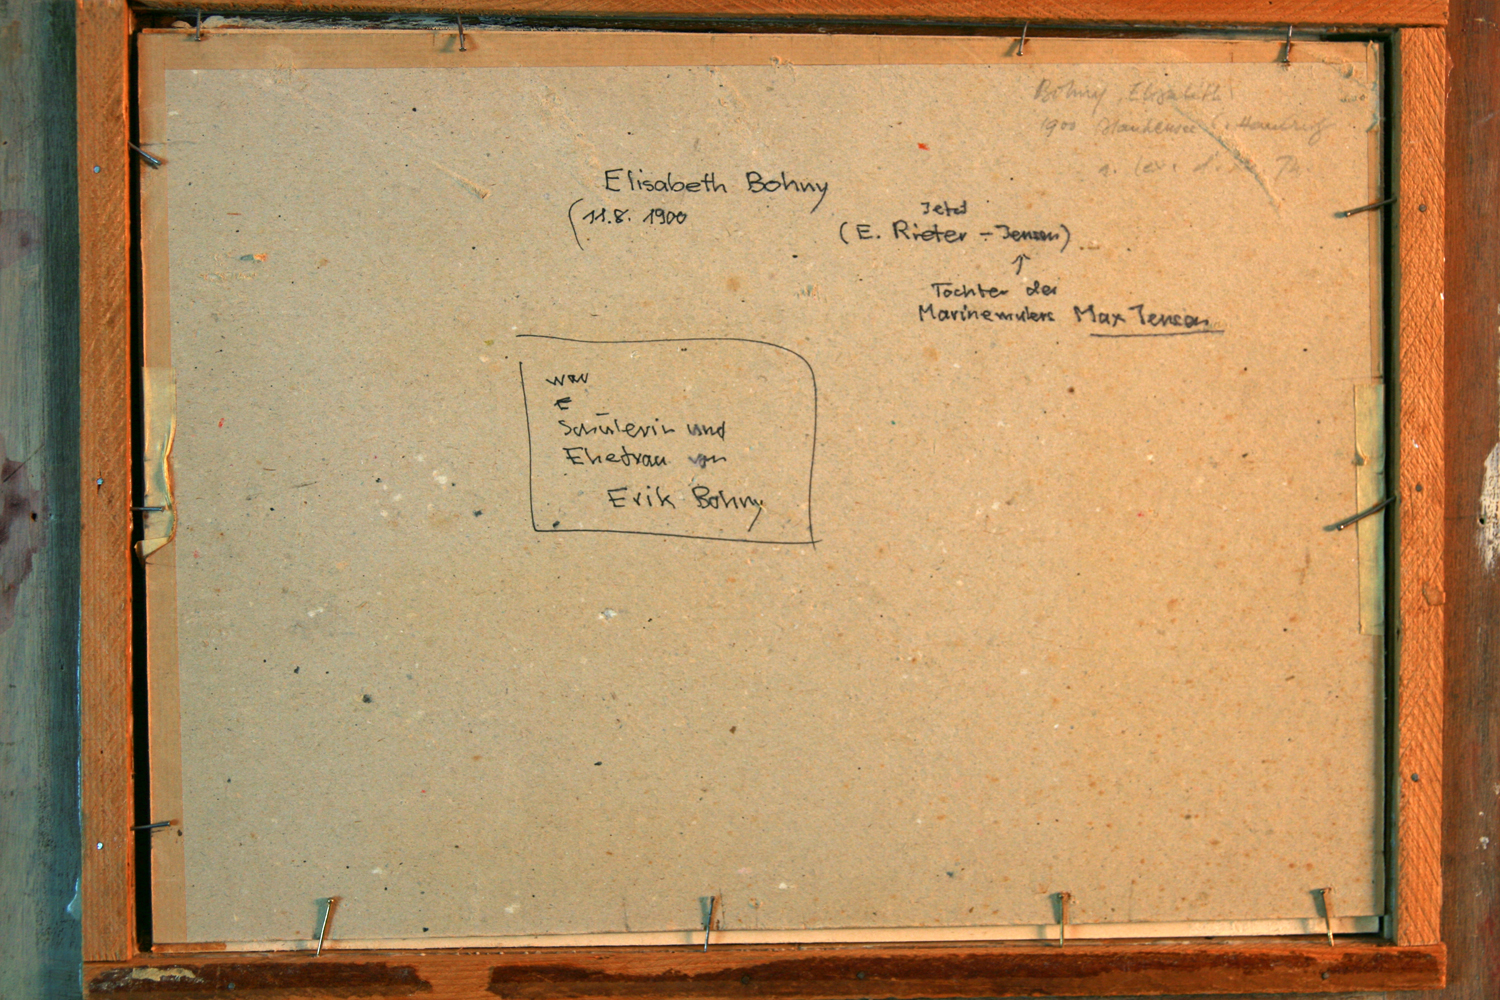 Bohny, Elisabeth
1900 Hamburg
Elisabeth Bohny
(11.8. 1900
Jetzt
(E. Rieter - Jensen)
↑
Tochter des
Marinemalers Max Jensen
war
E
Schülerin und
Ehefrau von
Erik Bohny